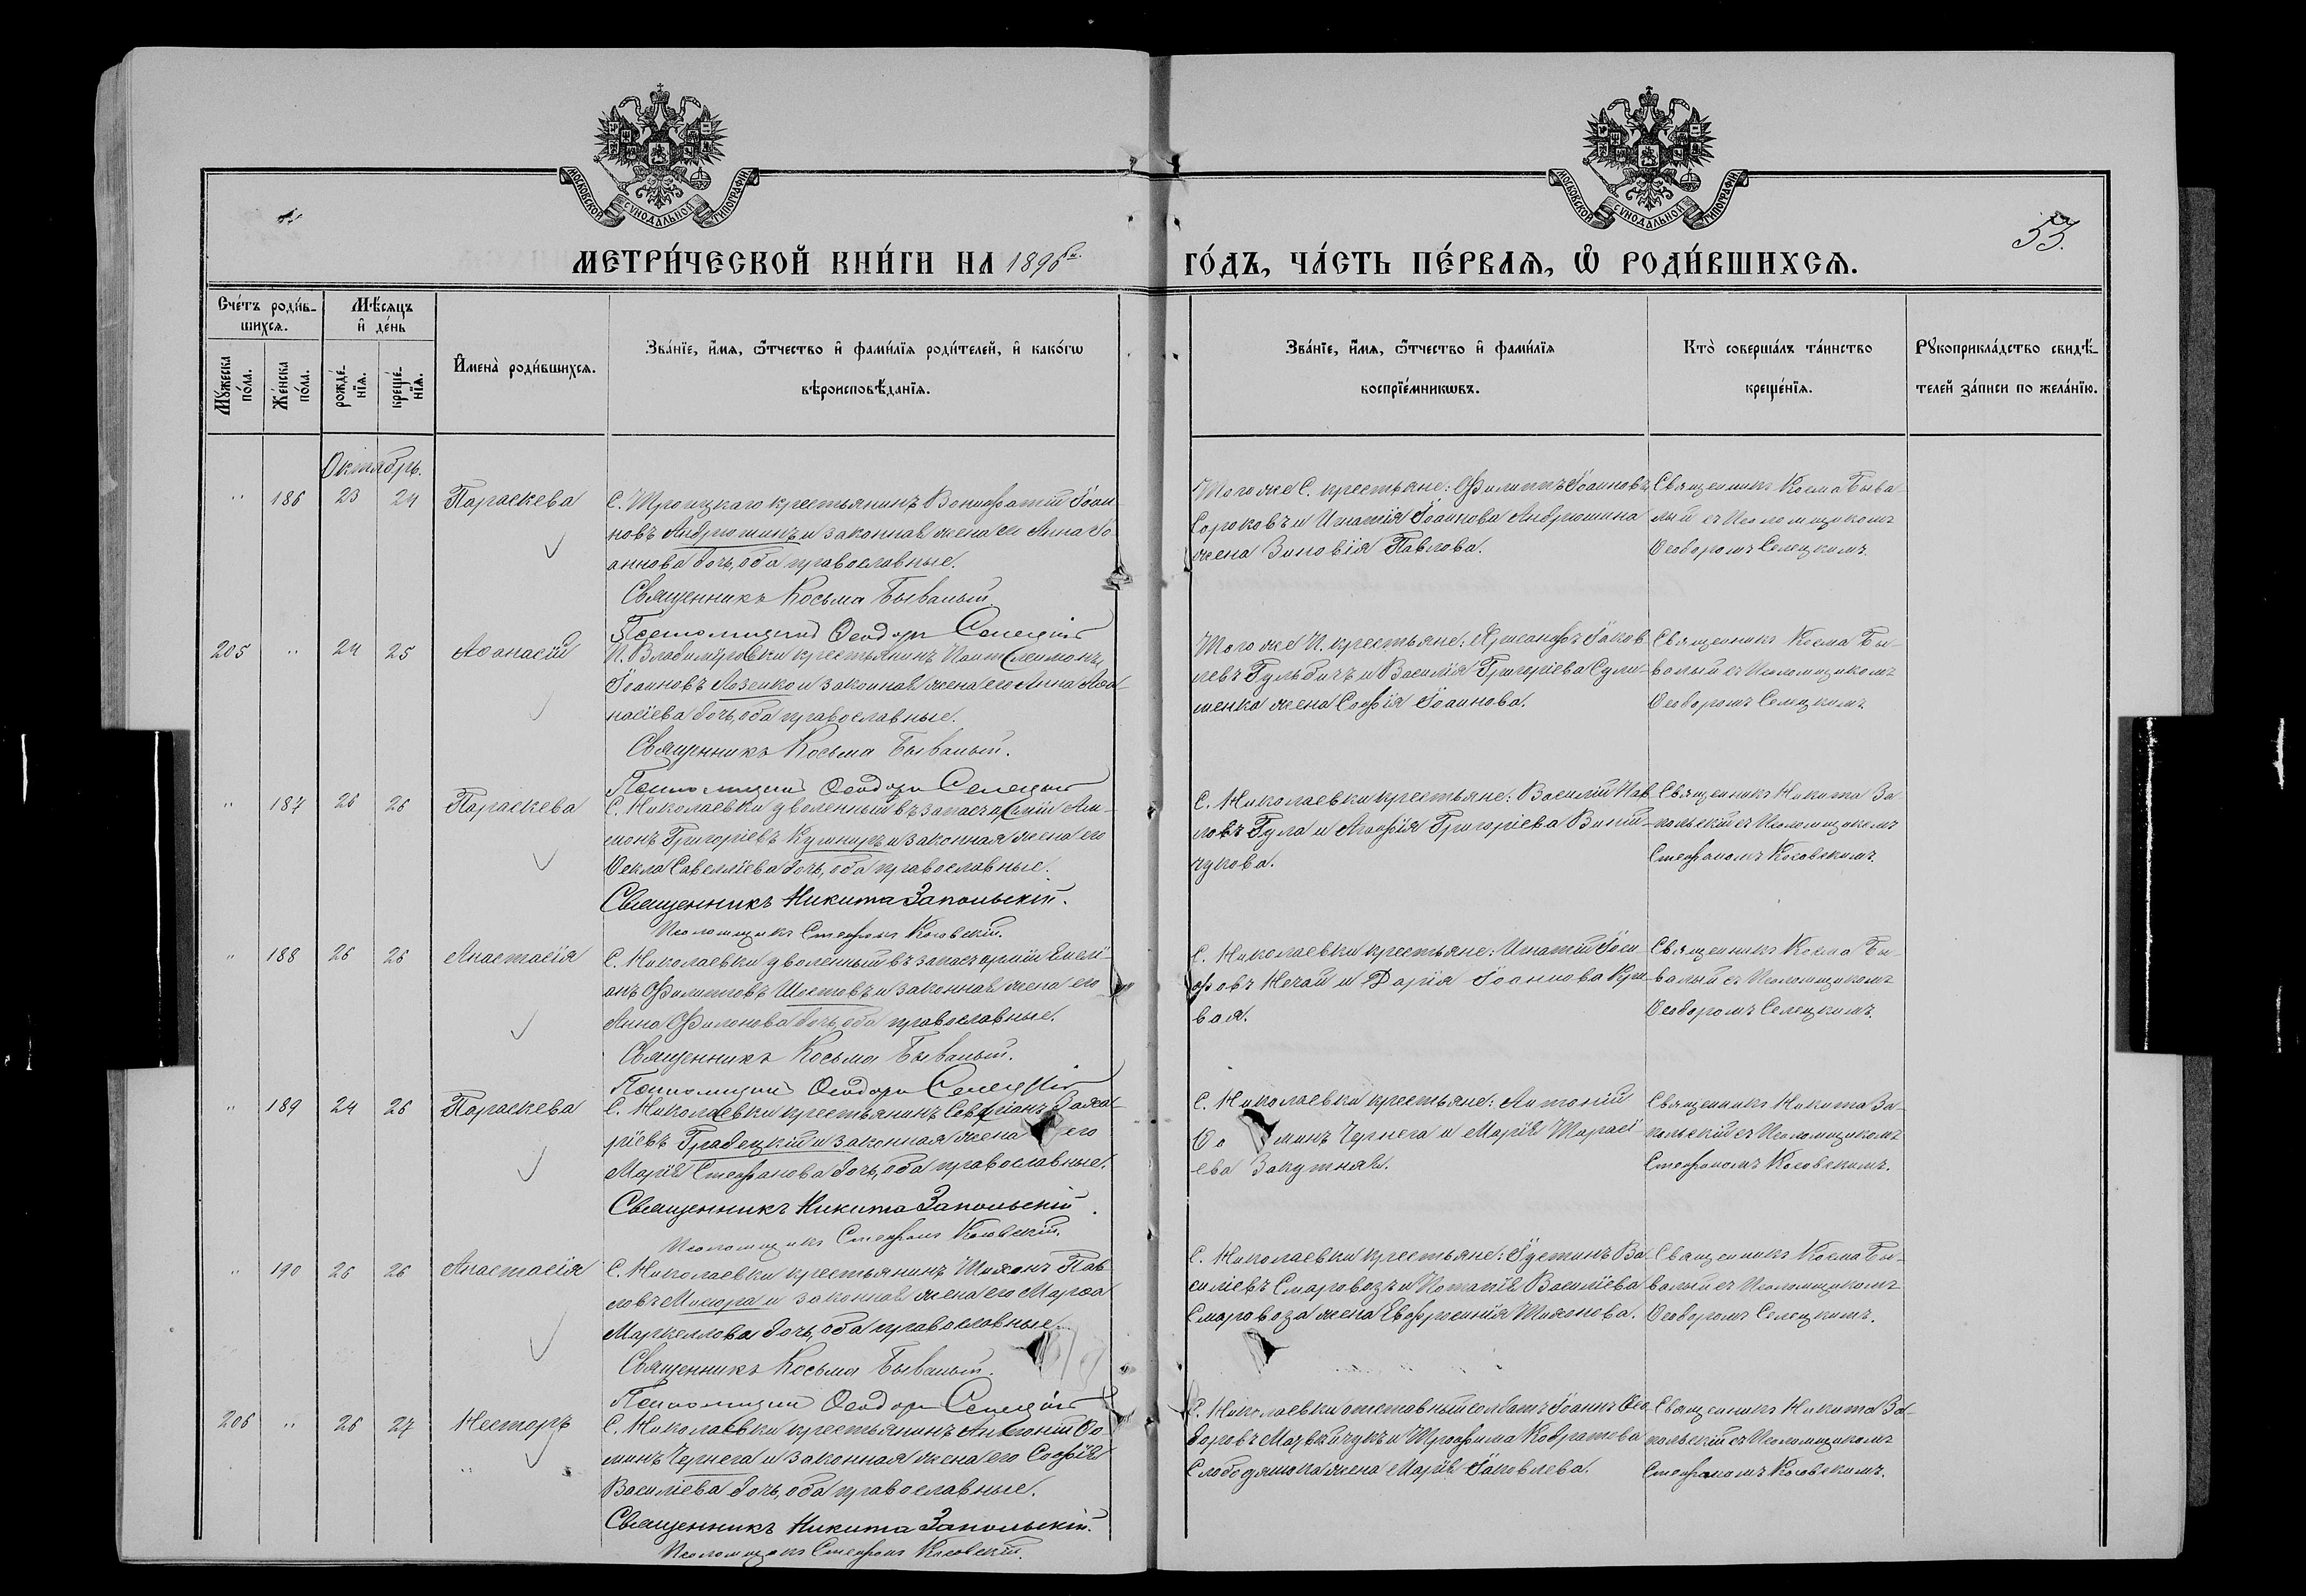 МОСКОВСКОЙ СУНОДАЛЬНОЙ ТИПОГРАФІИ
МОСКОВСКОЙ СУНОДАЛЬНОЙ ТИПОГРАФІИ
53.
МЕТРИ́ЧЕСКОЙ КНИ́ГИ НА 1896 ГО́ДЪ, ЧА́СТЬ ПЕ́РВАѦ, Ѽ РОДИ́ВШИХСѦ.
Сче́тъ роди́в-
шихсѧ.
Мꙋ́жеска
по́ла.
Же́нска
по́ла.
Мѣ́сѧцъ
и҆ де́нь
рожде́-
нїѧ.
креще́-
нїѧ.
И҆мена̀ роди́вшихсѧ.
Зва́нїе, и҆́мѧ, ѻ҆́тчество и҆ фами́лїѧ роди́телей, и҆ како́гѡ
вѣроисповѣ́данїѧ.
Зва́нїе, и҆́мѧ, ѻ҆́тчество и҆ фами́лїѧ
воспрїе́мникѡвъ.
Кто̀ соверша́лъ та́инство
креще́нїѧ.
Рꙋкоприкла́дство свидѣ́-
телей за́писи по жела́нїю.
Октябрь.
" 186 23 24 Параскева
С. Троицкаго крестьянинъ Вонифатій Іоан-
новъ Андрюшинъ и законная жена его Анна Іо-
аннова дочь, оба православные.
Священникъ Косьма Бывалый.
Псаломщикъ Ѳеодоръ Селецкій
Того же С. крестьяне: Филиппъ Іоанновъ
Сороковъ и Игнатія Іоаннова Андрюшина
жена Зиновія Павлова.
Священникъ Косма Быва-
лый съ Псаломщикомъ
Ѳеодоромъ Селецкимъ.
205 " 24 25 Аѳанасій
П. Владиміровки крестьянинъ Пантелеимонъ
Іоанновъ Лозенко и законная жена его Анна Аѳа-
насіева дочь, оба православные.
Священникъ Косьма Бывалый.
Псаломщикъ Ѳеодоръ Селецкій
Того же П. крестьяне: Хрисанфъ Іаков-
левъ Гульбичъ и Василія Григоріева Сули-
менка жена Софія Іоаннова.
Священникъ Косма Бы-
валый съ Псаломщикомъ
Ѳеодоромъ Селецкимъ.
" 187 26 26 Параскева
С. Николаевки уволенный въ запасъ арміи
Григоріевъ Кушниръ и законная жена его
Ѳекла Савелліева дочь, оба православные.
Священникъ Никита Запольскій.
Псаломщикъ Стефанъ Косовскій.
С. Николаевки крестьяне: Василій Пав-
ловъ Гула и Агафія Григоріева Вини-
чукова.
Священникъ Никита За-
польскій съ Псаломщикомъ
Стефаномъ Косовскимъ.
" 188 26 26 Анастасія
С. Николаевки уволенный въ запасъ арміи Емелі-
анъ Филипповъ Шостовъ и законная жена его
Анна Филонова дочь, оба православные.
Священникъ Косьма Бывалый.
Псаломщикъ Ѳеодоръ Селецкій
С. Николаевки крестьяне: Игнатій Іоси-
фовъ Нечай и Дарія Іоаннова Кри-
вая.
Священникъ Косма Бы-
валый съ Псаломщикомъ
Ѳеодоромъ Селецкимъ.
" 189 24 26 Параскева
С. Николаевки крестьянинъ Севастіанъ Заха-
ріевъ Градецкій и законная жена его
Марія Стефанова дочь, оба православные.
Священникъ Никита Запольскій.
Псаломщикъ Стефанъ Косовскій.
С. Николаевки крестьяне: Антоній
Ѳоминъ Чернега и Марія Тарасі-
ева Закутняя.
Священникъ Никита За-
польскій съ Псаломщикомъ
Стефаномъ Косовскимъ.
" 190 26 26 Анастасія
С. Николаевки крестьянинъ Тихонъ Пав-
ловъ Мисюра и законная жена его Марѳа
Маркеллова дочь, оба православные.
Священникъ Косьма Бывалый.
Псаломщикъ Ѳеодоръ Селецкій
С. Николаевки крестьяне: Іустинъ Ва-
силіевъ Смаровозъ и Потапія Василіева
Смаровоза жена Евфросинія Тихонова.
Священникъ Косма Бы-
валый съ Псаломщикомъ
Ѳеодоромъ Селецкимъ.
206 " 26 27 Несторъ
С. Николаевки крестьянинъ Антоній Ѳо-
минъ Чернега и законная жена его Софія
Василіева дочь, оба православные.
Священникъ Никита Запольскій.
Псаломщикъ Стефанъ Косовскій.
С. Николаевки отставный солдатъ Іоаннъ Ѳео-
доровъ Мацвійчукъ и Трофима Кодратова
Слободянюка жена Марія Іаковлева.
Священникъ Никита За-
польскій съ Псаломщикомъ
Стефаномъ Косовскимъ.